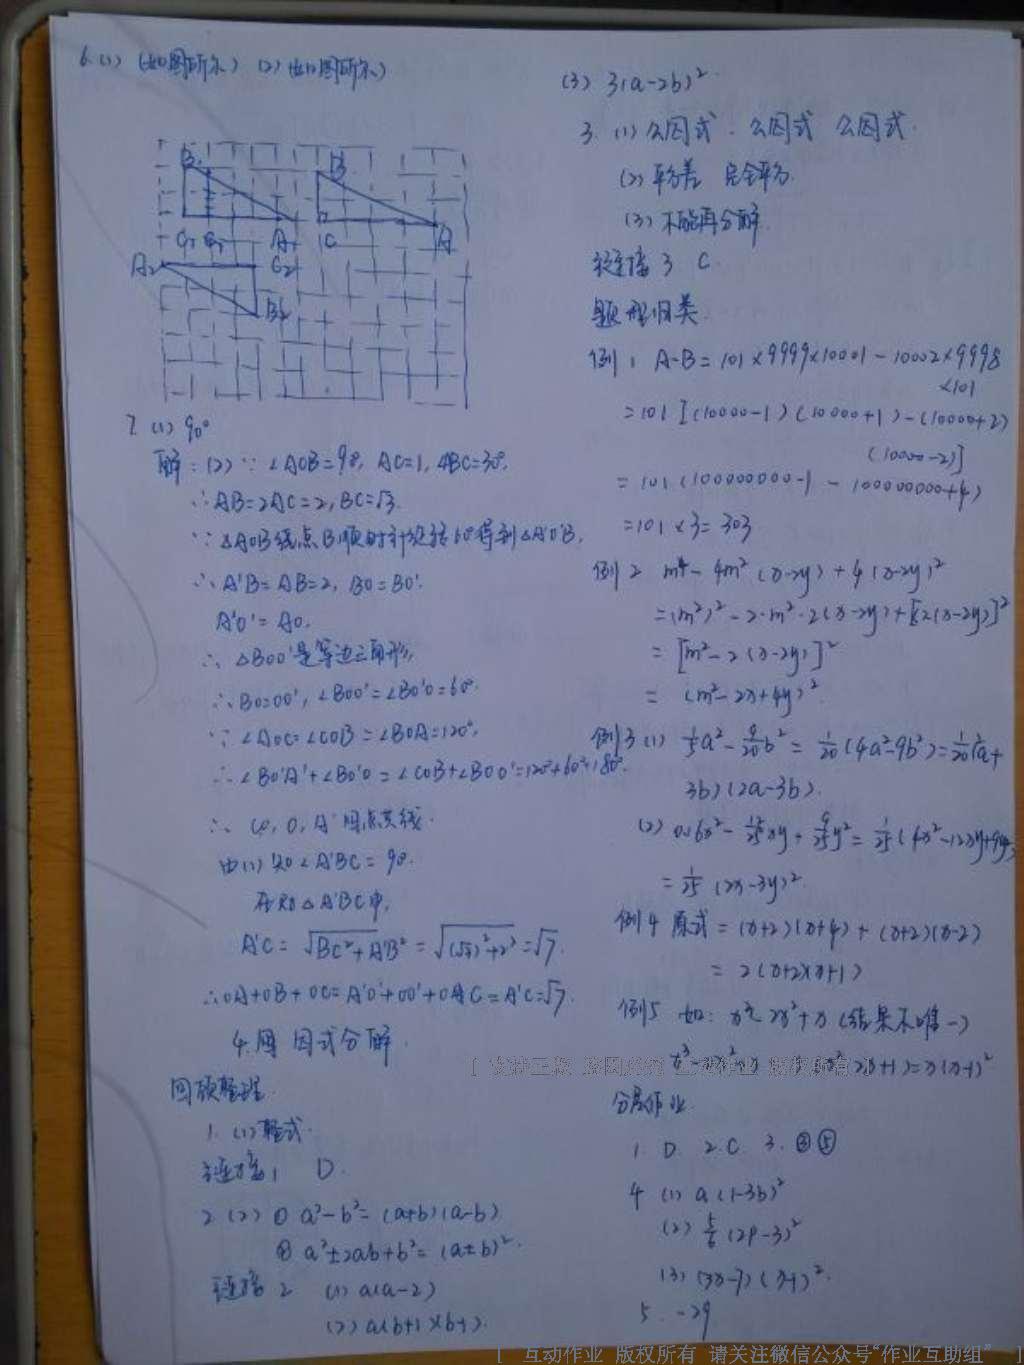 6.(1) (如图所示) (2)(如图所示)
B1
B
C1
A1
C
A
A2
C2
B2
7 (1) 90°
解:(2)∵∠ACB=90°, AC=1, ∠ABC=30°,
∴AB=2AC=2, BC=√3.
∵△AOB绕点B顺时针旋转60°得到△A'O'B,
∴A'B=AB=2, BO=BO'.
A'O'=AO,
∴△BOO'是等边三角形,
∴BO=OO', ∠BOO'=∠BO'O=60°.
∵∠AOC=∠COB=∠BOA=120°,
∴∠BO'A'+∠BO'O=∠COB+∠BOO'=120°+60°=180°.
∴ O, A' 四点共线.
由(1)知∠A'BC=90°.
在Rt△A'BC中,
A'C=√BC²+A'B²=√(√3)²+2²=√7.
∴OA+OB+OC=A'O'+OO'+OC=A'C=√7.
4.周 因式分解.
回顾整理
1.(1)整式.
链接1 D.
2 (2) ① a²-b²=(a+b)(a-b)
② a²±2ab+b²=(a±b)².
链接2 (1) a(a-2)
(2) a(b+1)(b-1).
(3) 3(a-2b)².
3. (1)公因式. 公因式 公因式.
(2)平方差 完全平方.
(3)不能再分解.
链接3 C.
题型归类
例1 A-B=101×9999×10001-10002×9998
×101
=101[(10000-1)(10000+1)-(10000+2)
(10000-2)]
=101(100000000-1-100000000+4)
=101×3=303
例2 m⁴-4m²(x-2y)+4(x-2y)²
=(m²)²-2·m²·2(x-2y)+[2(x-2y)]²
=[m²-2(x-2y)]²
=(m²-2x+4y)².
例3(1) 1/5a²-9/20b²=1/20(4a²-9b²)=1/20(2a+
3b)(2a-3b).
(2) 0.16x²-12/25xy+9/25y²=1/25(4x²-12xy+9y²)
=1/25(2x-3y)².
例4 原式=(x+2)(x+4)+(x+2)(x-2)
=2(x+2)(x+1)
例5 如: x³-2x²+x (结果不唯一)
x³-2x²+x 2x+1)=x(x-1)²
分层作业
1. D. 2.C. 3. ③⑤
4 (1) a(1-3b)²
(2) (2p-3)²
(3) (3x-7)(x-1)².
5. -29
[ 互动作业 版权所有 请关注微信公众号“作业互助组” ]